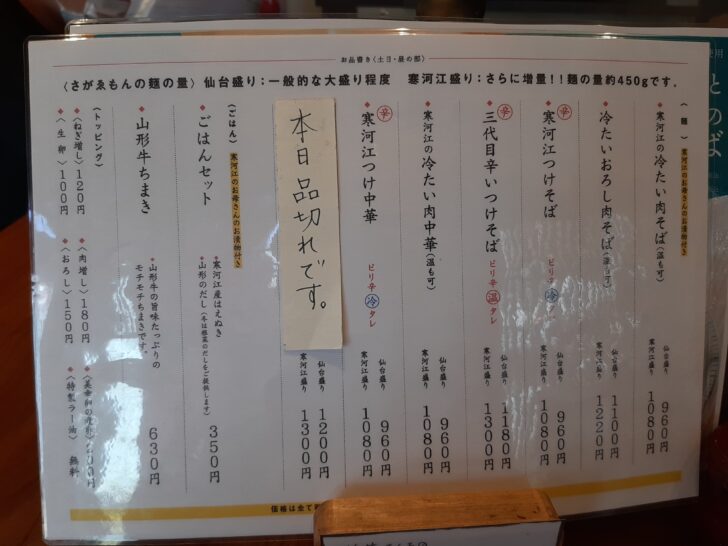 お品書き〈土日・昼の部〉
〈さがゑもんの麺の量〉 仙台盛り:一般的な大盛り程度 寒河江盛り:さらに増量!!麺の量約450gです。
〈麺〉 寒河江のお母さんのお漬物付き
寒河江の冷たい肉そば(温も可)
仙台盛り 960円
寒河江盛り 1080円
冷たいおろし肉そば(温も可)
仙台盛り 1100円
寒河江盛り 1220円
辛 寒河江つけそば ピリ辛 冷 タレ
仙台盛り 960円
寒河江盛り 1080円
辛 三代目辛いつけそば ピリ辛 温 タレ
仙台盛り 1180円
寒河江盛り 1300円
寒河江の冷たい肉中華(温も可)
仙台盛り 960円
寒河江盛り 1080円
辛 寒河江つけ中華 ピリ辛 冷 タレ
仙台盛り 960円
寒河江盛り 1080円
本日品切れです。
仙台盛り 1200円
寒河江盛り 1300円
〈ごはん〉 寒河江のお母さんのお漬物付き
ごはんセット
寒河江産はえぬき
山形のだし(冬は根菜のだしをご提供します)
350円
山形牛ちまき
山形牛の旨味たっぷりの
モチモチちまきです。
630円
〈トッピング〉
〈ねぎ増し〉120円
〈肉増し〉180円
〈生卵〉100円
〈おろし〉150円
200円
〈特製ラー油〉 無料
価格は全て